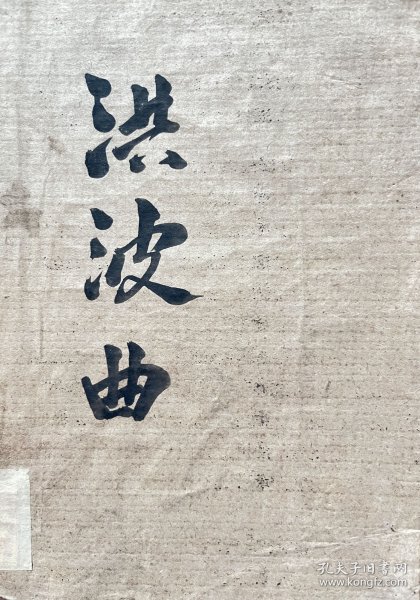 洪波曲
孔夫子旧书网
www.kongfz.com